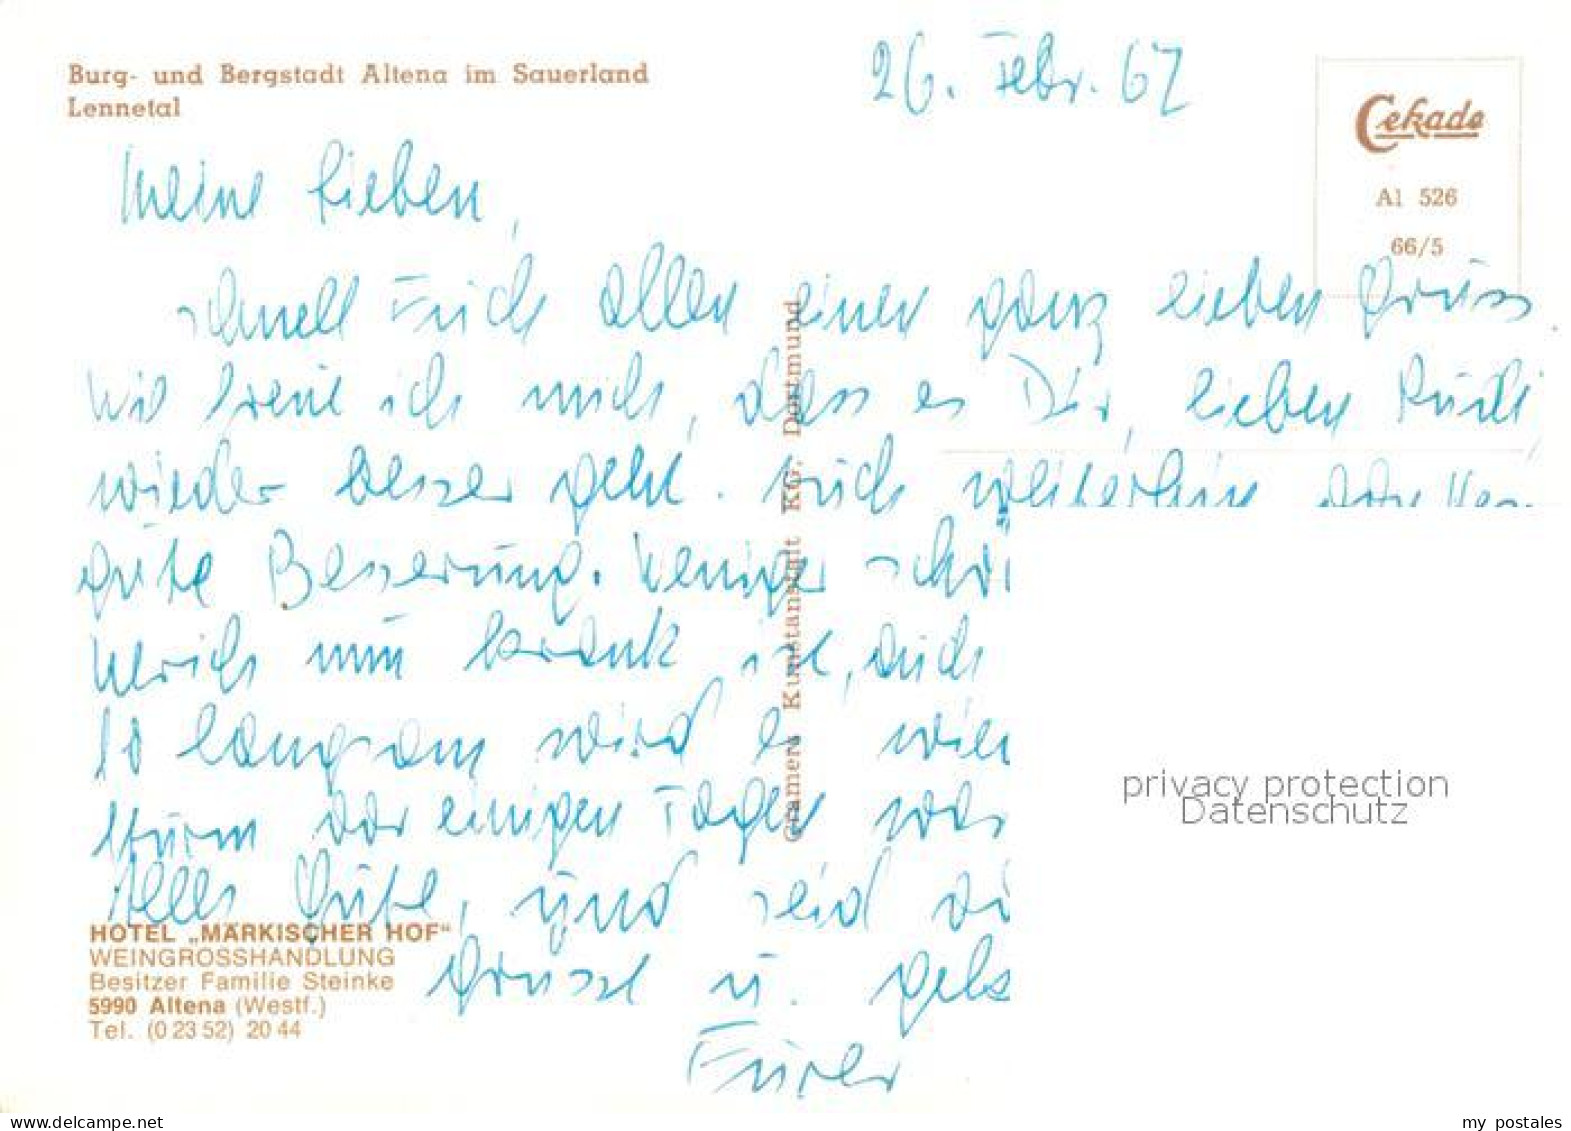 Burg- und Bergstadt Altena im Sauerland
Lennetal
26. Febr. 67
Cekade
Al 526
66/5
Meine Lieben,
schnell Euch allen einen ganz lieben Gruss.
Wie freut ich mich, dass es Dir, lieber Rudi,
wieder besser geht. Auch weiterhin
gute Besserung. Weniger schö
Ulrich nun krank ist, auch
so langsam wird es wie
Sturm vor einigen Tagen
Alles Gute, und seid
Grüsse u.
Eurer
Cramers Kunstanstalt KG, Dortmund
HOTEL „MÄRKISCHER HOF"
WEINGROSSHANDLUNG
Besitzer Familie Steinke
5990 Altena (Westf.)
Tel. (0 23 52) 20 44
privacy protection
Datenschutz
www.delcampe.net
my_postales